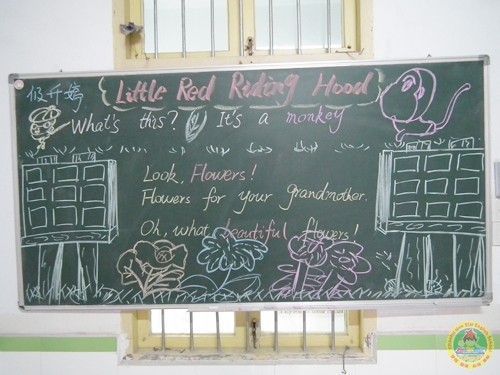 Little Red Riding Hood
What's this? It's a monkey
Look, Flowers!
Flowers for your grandmother.
Oh, what beautiful flowers!